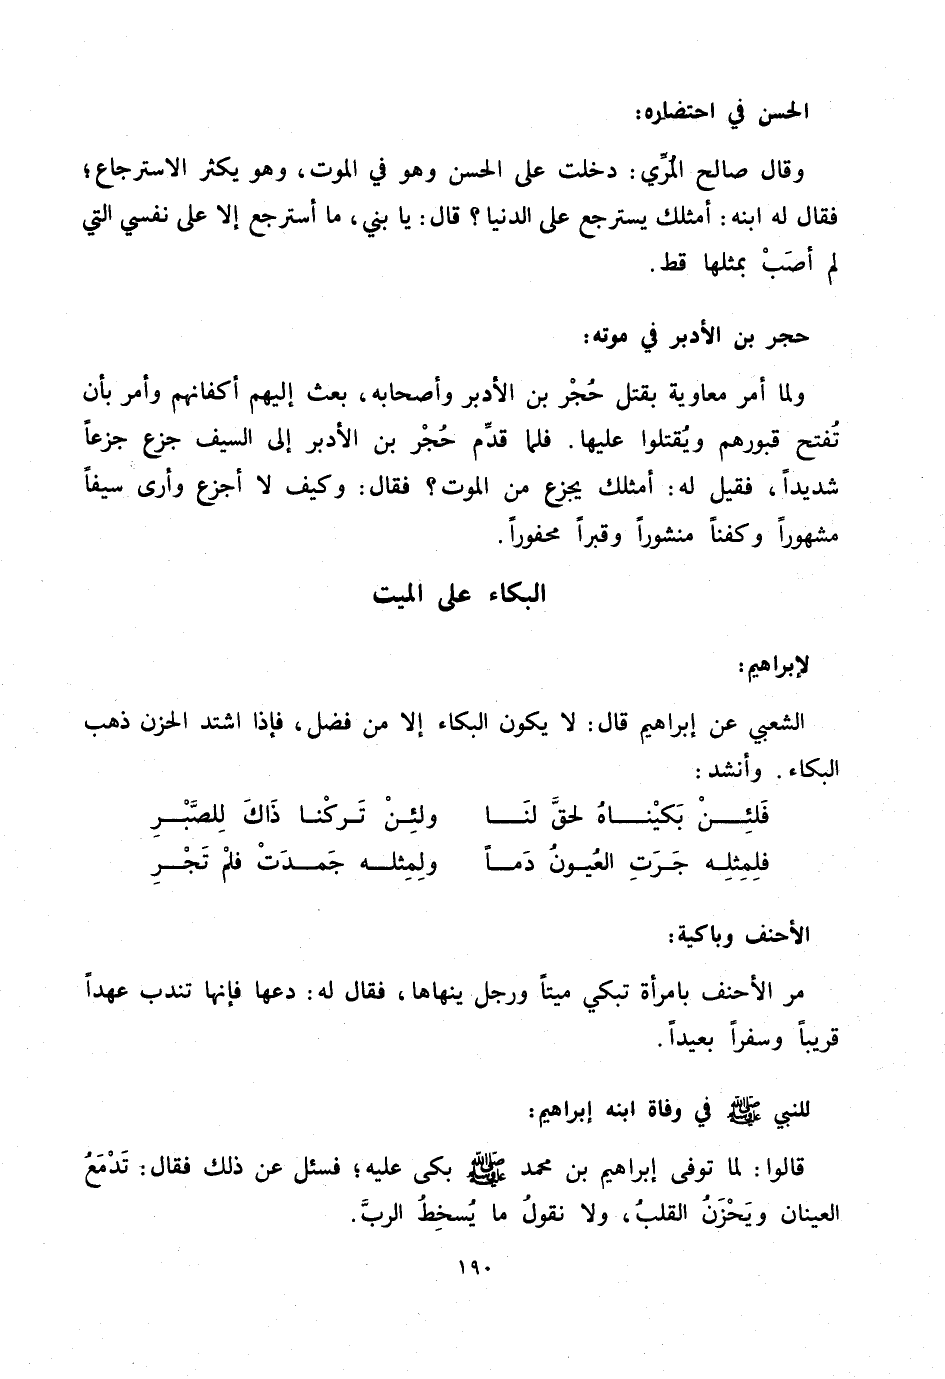 الحسن في احتضاره:
وقال صالح المُرِّي: دخلت على الحسن وهو في الموت، وهو يكثر الاسترجاع؛
فقال له ابنه: أمثلك يسترجع على الدنيا؟ قال: يا بني، ما أسترجع إلا على نفسي التي
لم أصَبْ بمثلها قط.
حجر بن الأدبر في موته:
ولما أمر معاوية بقتل حُجْر بن الأدبر وأصحابه، بعث إليهم أكفانهم وأمر بأن
تُفتح قبورهم ويُقتلوا عليها. فلما قدِّم حُجْر بن الأدبر إلى السيف جزع جزعاً
شديداً، فقيل له: أمثلك يجزع من الموت؟ فقال: وكيف لا أجزع وأرى سيفاً
مشهوراً وكفناً منشوراً وقبراً محفوراً.
البكاء على الميت
لإبراهيم:
الشعبي عن إبراهيم قال: لا يكون البكاء إلا من فضل، فإذا اشتد الحزن ذهب
البكاء. وأنشد:
فَلئِـنْ بَكيْنـاهُ لحقَّ لنَـا ولئِـنْ تَـركْنـا ذَاكَ لِلصَّبْـرِ
فلِمِثلِه جَـرَتِ العُيـونُ دَمـاً ولِمِثلـه جَمـدَتْ فلمْ تَجْـرِ
الأحنف وباكية:
مر الأحنف بامرأة تبكي ميتاً ورجل ينهاها، فقال له: دعها فإنها تندب عهداً
قريباً وسفراً بعيداً.
للنبي ﷺ في وفاة ابنه إبراهيم:
قالوا: لما توفى إبراهيم بن محمد ﷺ بكى عليه؛ فسئل عن ذلك فقال: تَدْمَعُ
العينان ويَحْزَنُ القلبُ، ولا نقولُ ما يُسخِطُ الربَّ.
١٩٠